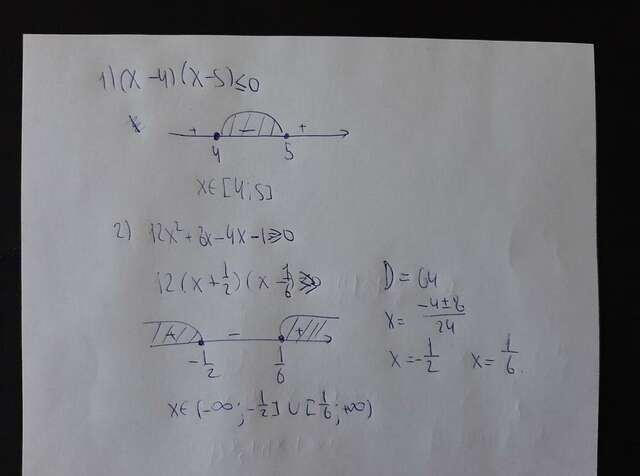 1) (x - 4) (x - 5) ≤ 0
+ - +
4 5
x ∈ [4; 5]
2) 12x² + 8x - 4x - 1 ≥ 0
12 (x + 1/2) (x - 1/6) ≥ 0
D = 64
x = (-4 ± 8)/24
x = -1/2 x = 1/6.
+ - +
-1/2 1/6
x ∈ (-∞; -1/2] ∪ [1/6; +∞)